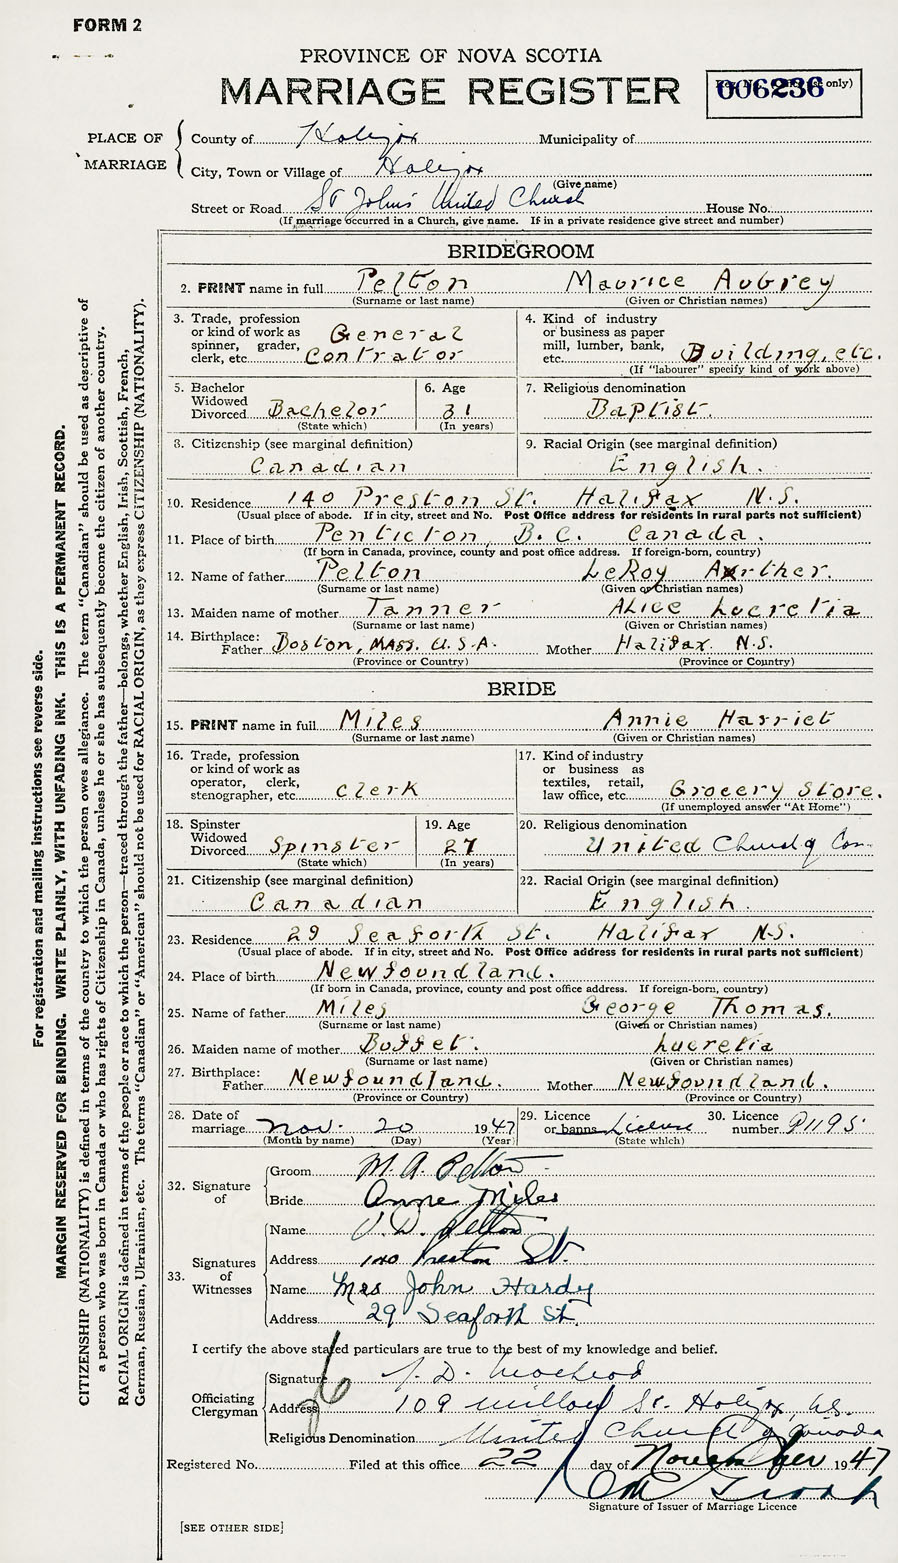 FORM 2
PROVINCE OF NOVA SCOTIA
MARRIAGE REGISTER
006236 only)
PLACE OF MARRIAGE
County of Halifax Municipality of
City, Town or Village of Halifax
(Give name)
Street or Road St John's United Church House No.
(If marriage occurred in a Church, give name. If in a private residence give street and number)
BRIDEGROOM
2. PRINT name in full Pelton Maurice Aubrey
(Surname or last name) (Given or Christian names)
3. Trade, profession or kind of work as spinner, grader, clerk, etc. General Contrator
4. Kind of industry or business as paper mill, lumber, bank, etc. Building, etc.
(If "labourer" specify kind of work above)
5. Bachelor Widowed Divorced Bachelor
(State which)
6. Age 31
(In years)
7. Religious denomination Baptist.
8. Citizenship (see marginal definition) Canadian
9. Racial Origin (see marginal definition) English.
10. Residence 140 Preston St. Halifax N.S.
(Usual place of abode. If in city, street and No. Post Office address for residents in rural parts not sufficient)
11. Place of birth Penticton, B.C. Canada.
(If born in Canada, province, county and post office address. If foreign-born, country)
12. Name of father Pelton LeRoy Arther.
(Surname or last name) (Given or Christian names)
13. Maiden name of mother Tanner Alice Lucretia
(Surname or last name) (Given or Christian names)
14. Birthplace: Father Boston, Mass. U.S.A. Mother Halifax N.S.
(Province or Country) (Province or Country)
BRIDE
15. PRINT name in full Miles Annie Harriet
(Surname or last name) (Given or Christian names)
16. Trade, profession or kind of work as operator, clerk, stenographer, etc. Clerk
17. Kind of industry or business as textiles, retail, law office, etc. Grocery Store.
(If unemployed answer "At Home")
18. Spinster Widowed Divorced Spinster
(State which)
19. Age 27
(In years)
20. Religious denomination United Church of Can
21. Citizenship (see marginal definition) Canadian
22. Racial Origin (see marginal definition) English.
23. Residence 29 Seaforth St. Halifax N.S.
(Usual place of abode. If in city, street and No. Post Office address for residents in rural parts not sufficient)
24. Place of birth Newfoundland.
(If born in Canada, province, county and post office address. If foreign-born, country)
25. Name of father Miles George Thomas.
(Surname or last name) (Given or Christian names)
26. Maiden name of mother Buffet. Lucretia
(Surname or last name) (Given or Christian names)
27. Birthplace: Father Newfoundland. Mother Newfoundland.
(Province or Country) (Province or Country)
28. Date of marriage Nov. 20 1947
(Month by name) (Day) (Year)
29. Licence or banns License
(State which)
30. Licence number 91195
32. Signature of
Groom M. A. Pelton
Bride Anne Miles
33. Signatures of Witnesses
Name Pelton
Address 140 Preston St.
Name Mrs John Hardy
Address 29 Seaforth St.
I certify the above stated particulars are true to the best of my knowledge and belief.
Officiating Clergyman
Signature
Address 109 Willow St. Halifax, N.S.
Religious Denomination United Church of Canada
Registered No. Filed at this office 22 day of November 1947
Signature of Issuer of Marriage Licence
[SEE OTHER SIDE]
For registration and mailing instructions see reverse side.
MARGIN RESERVED FOR BINDING. WRITE PLAINLY, WITH UNFADING INK. THIS IS A PERMANENT RECORD.
CITIZENSHIP (NATIONALITY) is defined in terms of the country to which the person owes allegiance. The term "Canadian" should be used as descriptive of
a person who was born in Canada or who has rights of Citizenship in Canada, unless he or she has subsequently become the citizen of another country.
RACIAL ORIGIN is defined in terms of the people or race to which the person—traced through the father—belongs, whether English, Irish, Scottish, French,
German, Russian, Ukrainian, etc. The terms "Canadian" or "American" should not be used for RACIAL ORIGIN, as they express CITIZENSHIP (NATIONALITY).